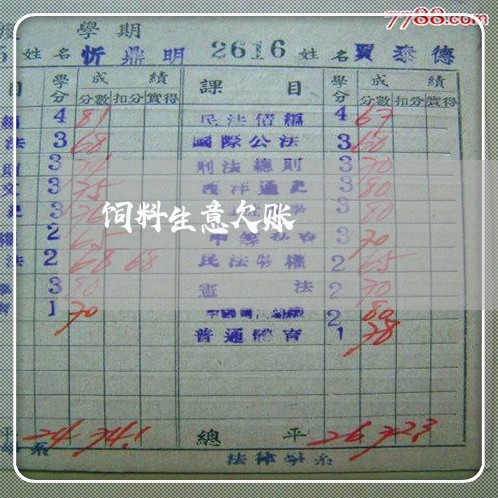 7788.com
學期
5 姓名 忻鼎明 2616 姓名 賈泰德
目 學分 成績 課目 學分 成績
分數 扣分 實得 分數 扣分 實得
4 81 民法債編 4 67
法 3 68 國際公法 3 60
則 3 刑法總則 3 70
3 75 西洋通史 3 80
3 3 80
饲料生意欠账
權 2 65 3 70
法 2 68 68 民法物權 2 65
3 80 憲法 2 70
育 1 70 2 80
普通體育 1 78
平 24 74.1 總平 26 72.3
系 法律學系